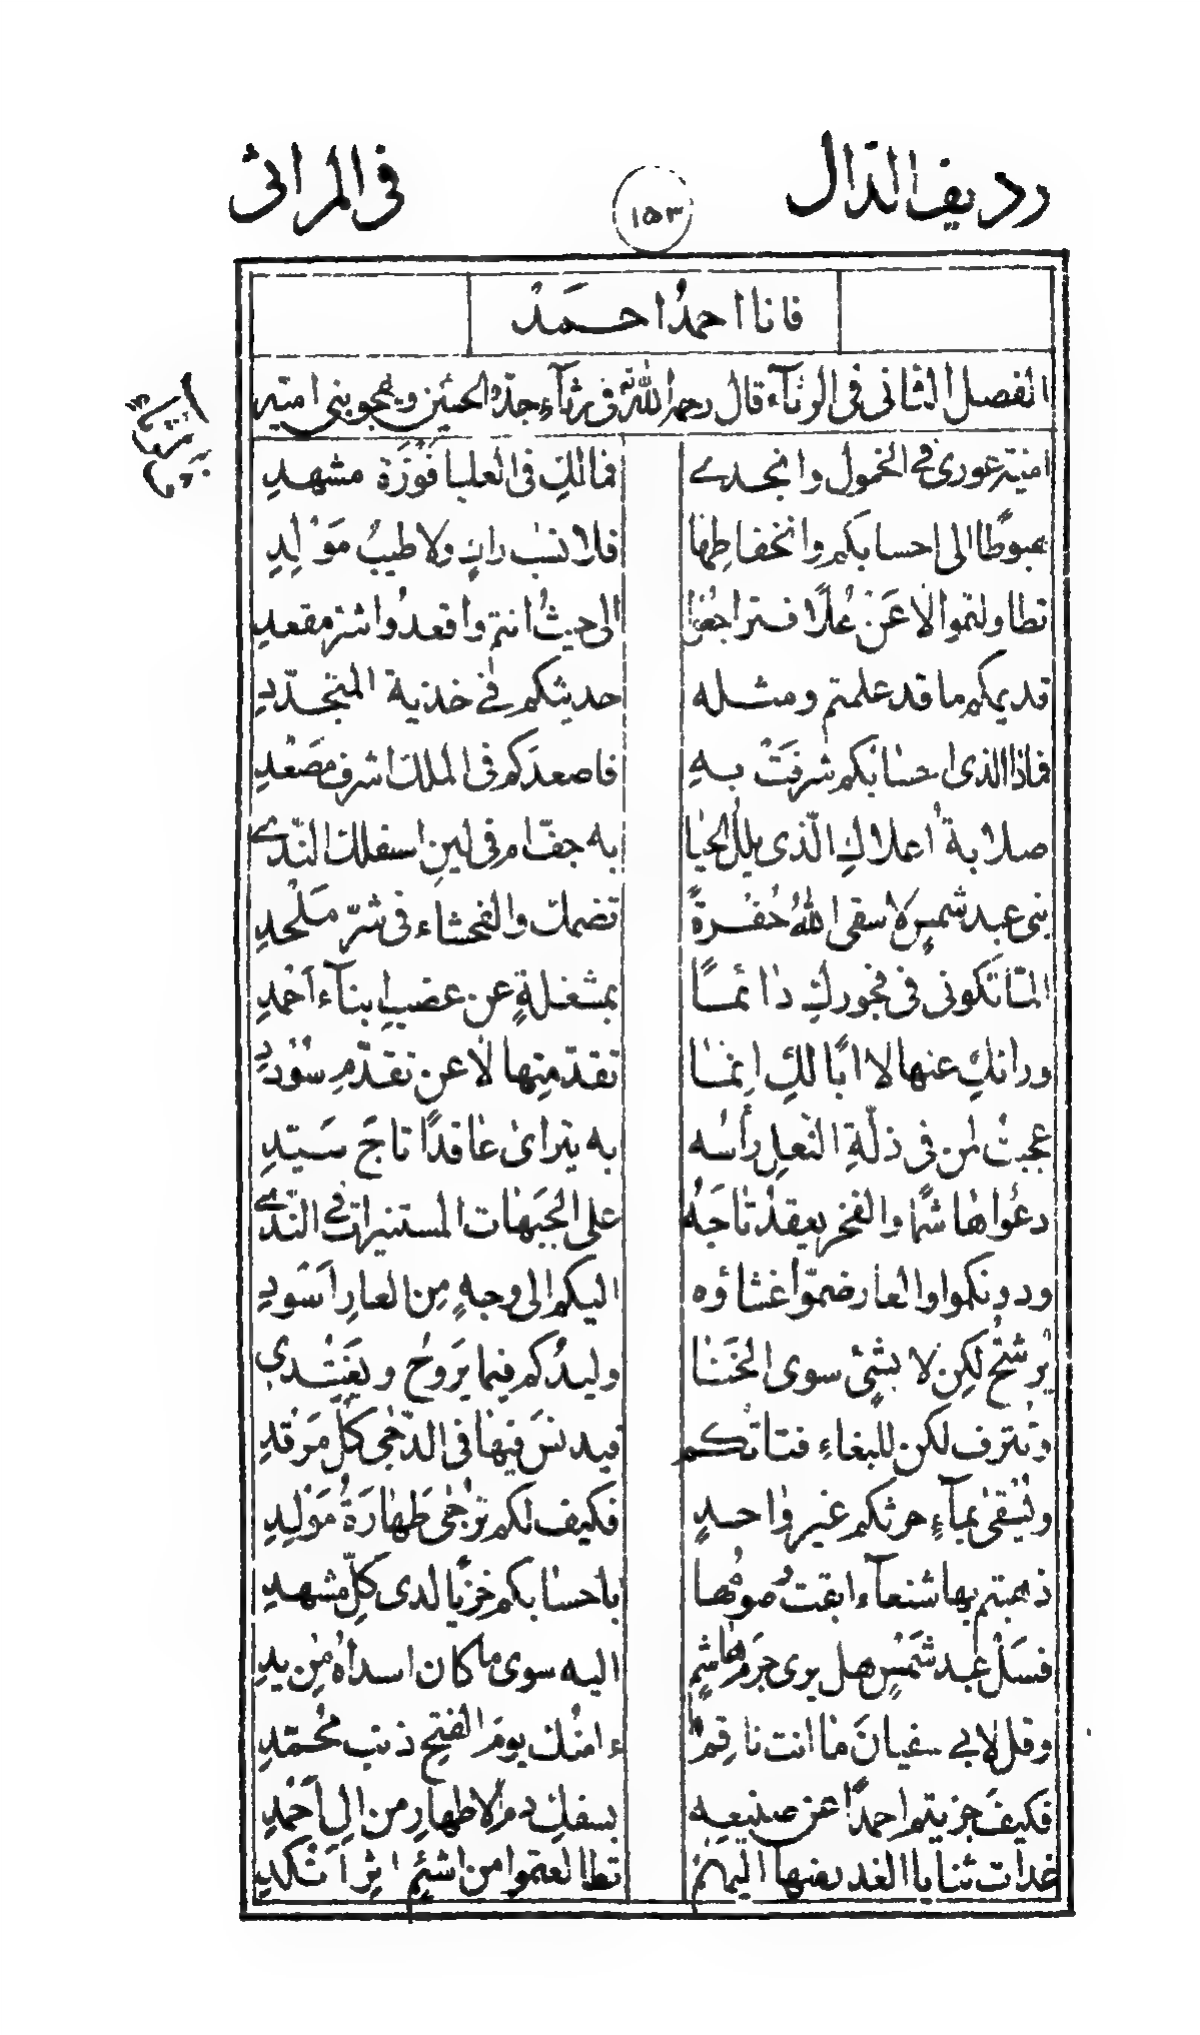 رديف الدال ١٥٣ في المراثي
فانا احمدُ احمَدْ
الفصل الثاني في الرثآء قال رحمه الله في رثآء جدّه الحسين ويهجو بني اميّه
اميّة غوري في الخمول وانجدي فمالكِ في العليا فَوْزَة مشهدِ
هبوطًا الى احسابكم وانخفاضها فلا نسبٌ زاكٍ ولا طيبُ مَوْلِدِ
تطاولتموا لا عَنْ عُلًا فتراجعوا الى حيثُ انتم واقعدُوا شرّ مقعدِ
قديمكم ما قد علمتم ومثله حديثكم في خزية المتجدّدِ
فماذا الذي احسابكم شرفَتْ بهِ فاصعدَكم في الملك اشرف مصْعَدِ
صلابةُ اعلاكِ الّذي بلل الحيا به جفّ ام في لينِ اسفلك النّدي
بني عبد شمسٍ لا سقى اللهُ حُفْرةً تضمك والفحشاء في شرّ ملْحدِ
المّا تكوني في فجوركِ دائمًا بمشغلةٍ عن غصبِ ابنآء احْمدِ
وراءكِ عنها لا ابًا لكِ إنّما تقدّمتِها لا عن تقدّمِ سُؤْددِ
عجبتُ لمن في ذلّةِ النّعلِ رأسُه به يترائى عاقدًا تاجَ سَيّدِ
دعُوا هاشمًا والفخر يعقدُ تاجَهُ على الجَبهات المستنيرات في النّدي
ودونكموا والعار ضمّوا غشاؤه اليكم الى وجهٍ مِن العارِ اَسْودِ
يُرشّحُ لكِن لا بشيْءٍ سوى الخَنَا وليدُكم فيما يَرُوحُ ويَغْتدي
وتُترف لكن للبغاءِ فتاتُكم فيدنسَ فيها في الدّجى كلّ مرْقدِ
ويُسْقى بمآءٍ حرثكم غير واحدٍ فكيف لكم تُرْجى طَهارَةُ مَوْلِدِ
ذهبتم بها شنعآء ابقتْ وصومُها باحسابكم خزْيًا لدى كلّ مشهدِ
فسَلْ عبد شَمْسٍ هل يرى جرمَ هاشمٍ اليه سوى ما كان اسداهُ مِن يدِ
وقل لابي سفيانَ ما انت ناقمٌ ءامنُك يومَ الفتحِ ذنب محُمّدِ
فكيفَ جزيتم احمدًا عن صنيعِه بسفكِ دمِ الاطهارِ من آلِ اَحْمدِ
غداتَ ثنايا الغدر منها اليهم تطالعتموا من اشئمٍ اثْر اَنْكدِ